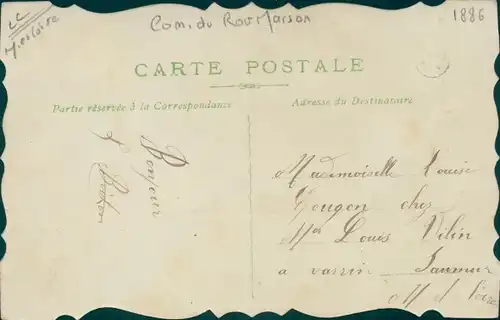 Com. du Rou Marson
1886
CARTE POSTALE
Partie réservée à la Correspondance
Adresse du Destinataire
Bonjour
Mademoiselle Louise
Gougon chez
Mr Louis Vilin
a varrin Saumur
M et Loire